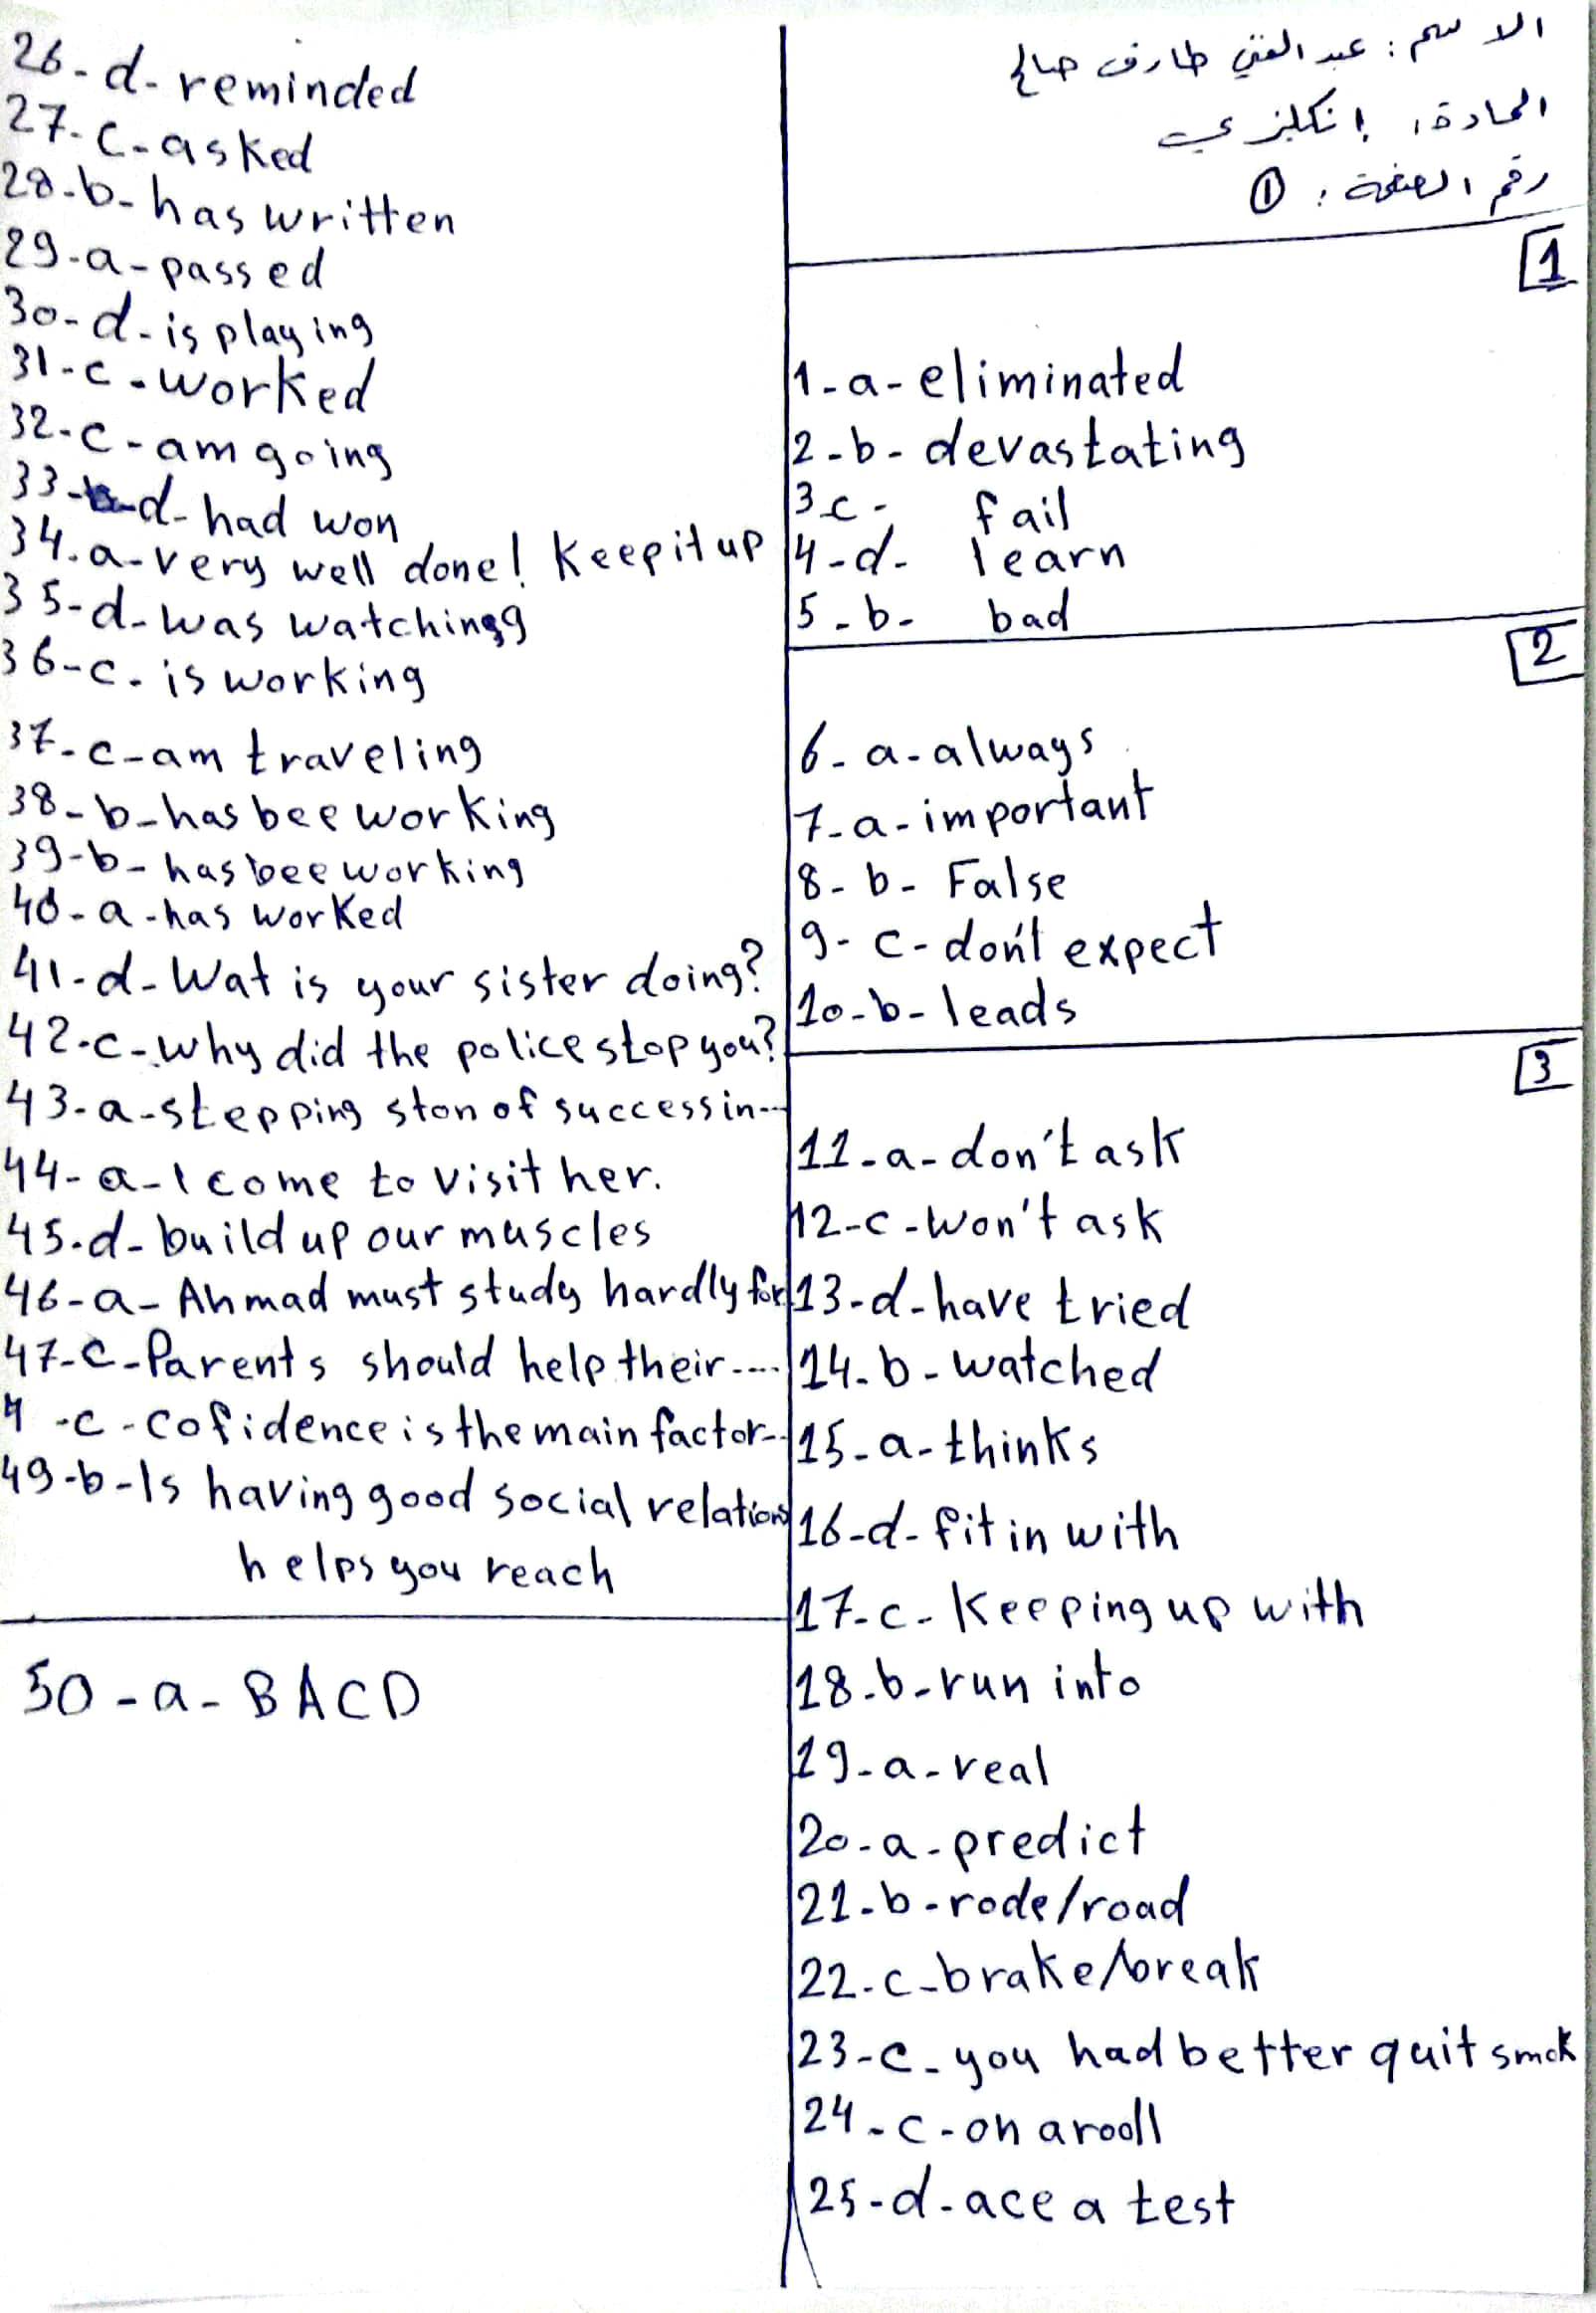 الاسم : عبد الغني طارق صالح
المادة : إنكليزي
رقم الصفحة : ①
1
1-a-eliminated
2-b-devastating
3c- fail
4-d- learn
5-b- bad
2
6-a-always
7-a-important
8-b- False
9-c-don't expect
10-b-leads
3
11-a-don't ask
12-c-won't ask
13-d-have tried
14-b-watched
15-a-thinks
16-d-fit in with
17-c-Keeping up with
18-b-run into
19-a-real
20-a-predict
21-b-rode/road
22-c-brake/break
23-c-you had better quit smok
24-c-on a rooll
25-d-ace a test
26-d-reminded
27-c-asked
28-b-has written
29-a-passed
30-d-is playing
31-c-worked
32-c-am going
33-d-had won
34-a-very well done! Keep it up
35-d-was watchingg
36-c-is working
37-c-am traveling
38-b-has bee working
39-b-has bee working
40-a-has worked
41-d-Wat is your sister doing?
42-c-why did the police stop you?
43-a-stepping ston of success in...
44-a-I come to visit her.
45-d-build up our muscles
46-a-Ahmad must study hardly for
47-c-Parents should help their....
4 -c-cofidence is the main factor...
49-b-Is having good social relations
helps you reach
50-a-BACD